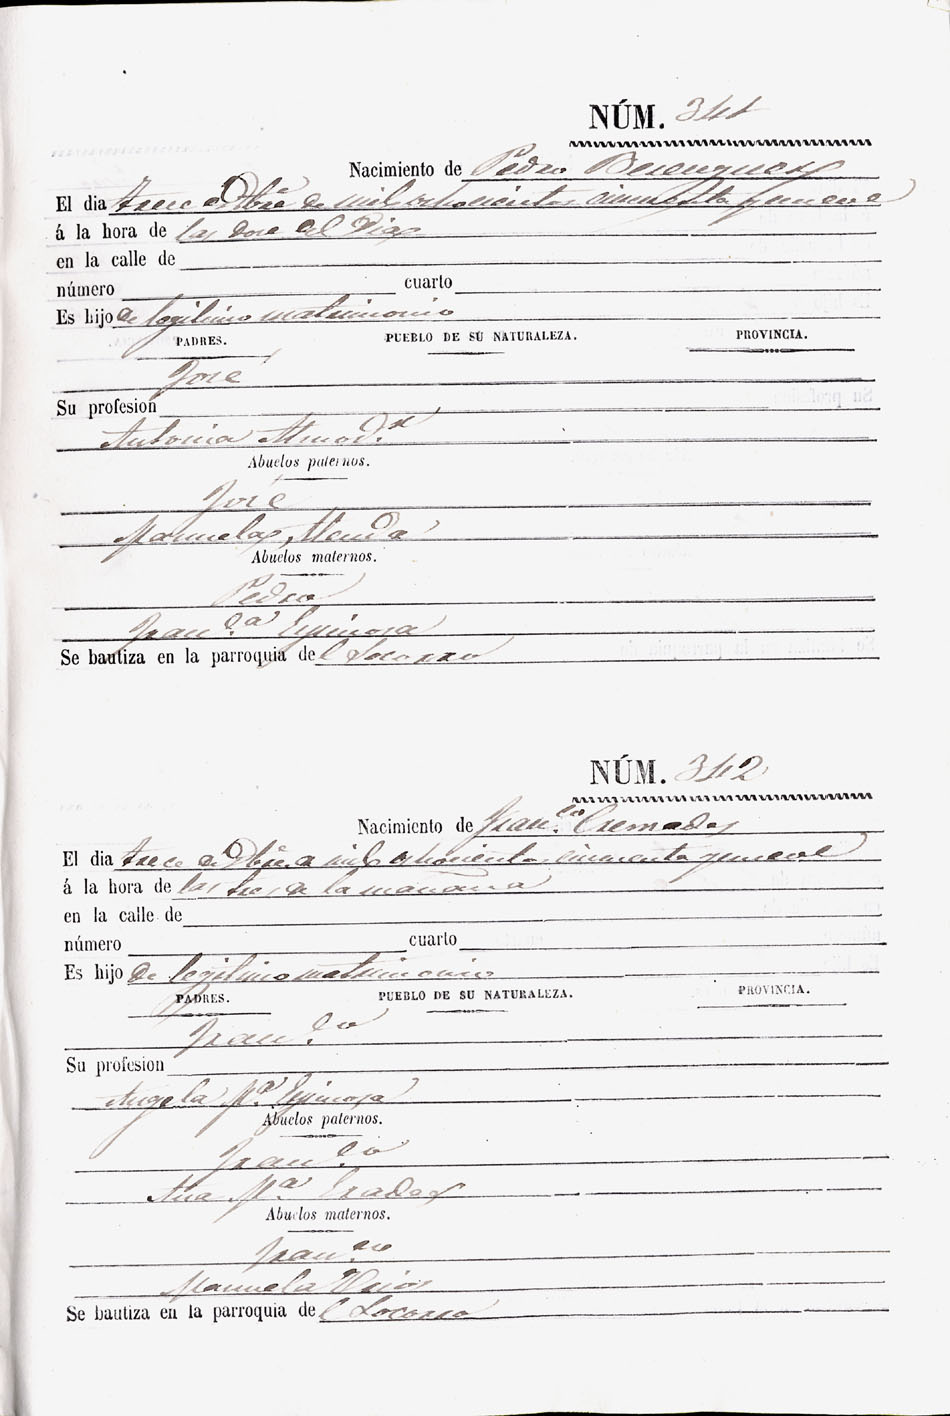 NÚM. 341
Nacimiento de Pedro Berenguer
El dia trece de Dbre de mil ochocientos cincuenta y nueve
á la hora de las doce del Dia
en la calle de
número cuarto
Es hijo de legitimo matrimonio
PADRES. PUEBLO DE SU NATURALEZA. PROVINCIA.
José
Su profesion
Antonia
Abuelos paternos.
José
Manuela
Abuelos maternos.
Pedro
Fran.ca Espinosa
Se bautiza en la parroquia del Socorro
NÚM. 342
Nacimiento de Fran.co Cremades
El dia trece de Dbre de mil ochocientos cincuenta y nueve
á la hora de las tres de la mañana
en la calle de
número cuarto
Es hijo de legitimo matrimonio
PADRES. PUEBLO DE SU NATURALEZA. PROVINCIA.
Fran.co
Su profesion
Angela M.a Espinosa
Abuelos paternos.
Fran.co
Ana M.a
Abuelos maternos.
Fran.co
Manuela
Se bautiza en la parroquia del Socorro